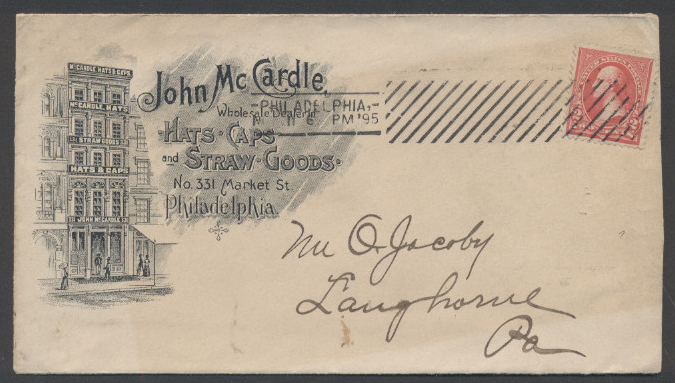 McCARDLE, HATS & CAPS.
McCARDLE, HATS
STRAW GOODS
HATS & CAPS
JOHN McCARDLE
John McCardle,
Wholesale Dealer in
HATS · CAPS
and STRAW · GOODS ·
No. 331 Market St.
Philadelphia.
PHILADELPHIA,
6 PM '95
Mr O. Jacoby
Langhorne
Pa